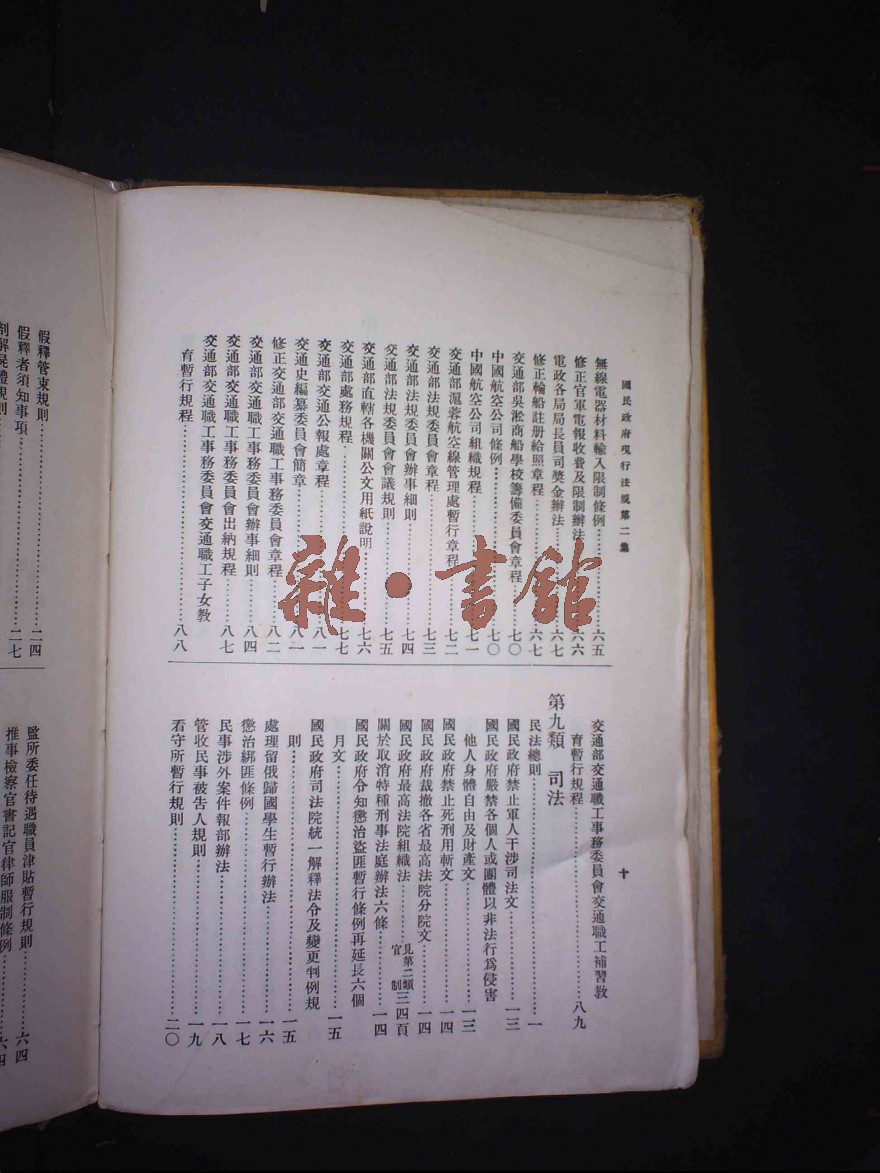 國民政府現行法規第二集
十
無線電器材料輸入限制條例……六五
修正官軍電報收費及限制辦法……六六
電政各局局長員司獎金辦法……六七
修正輪船註册給照章程……六七
交通部吳淞商船學校籌備委員會章程……七〇
中國航空公司條例……七〇
中國航空公司組織規程……七一
交通部滬蓉航空線管理處暫行章程……七二
交通部法規委員會章程……七三
交通部法規委員會辦事細則……七四
交通部法規委員會會議規則……七五
交通部直轄各機關公文用紙說明……七六
交通部處務規程……七七
交通部交通公報處章程……八一
交通史編纂委員會簡章……八一
修正交通部交通職工事務委員會章程……八二
交通部交通職工事務委員會辦事細則……八四
交通部交通職工事務委員會出納規程……八七
交通部交通職工事務委員會交通職工子女教
育暫行規程……八八
交通部交通職工事務委員會交通職工補習教
育暫行規程……八九
第九類 司法
民法總則……一
國民政府禁止軍人干涉司法文……一三
國民政府嚴禁各個人或團體以非法行爲侵害
他人身體自由及財產文……一三
國民政府禁止死刑用斬文……一四
國民政府裁撤各省最高法院分院文……一四
國民政府最高法院組織法……見第二類官制三四頁
關於取消特種刑事法庭辦法六條……一四
國民政府令知懲治盜匪暫行條例再延長六個
月文……一五
國民政府司法院統一解釋法令及變更判例規
則……一五
處理留俄歸國學生暫行辦法……一六
懲治綁匪條例……一七
民事涉外案件報部辦法……一八
管收民事被告人規則……一九
看守所暫行規則……二〇
假釋管束規則……二四
假釋者須知事項……二七
剖解屍體規則
監所委任待遇職員津貼暫行規則……六四
推事檢察官書記官律師服制條例……六四
雜·書館